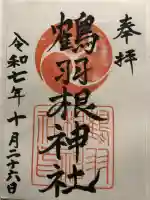 奉拝
鶴羽根神社
令和七年十月二十六日